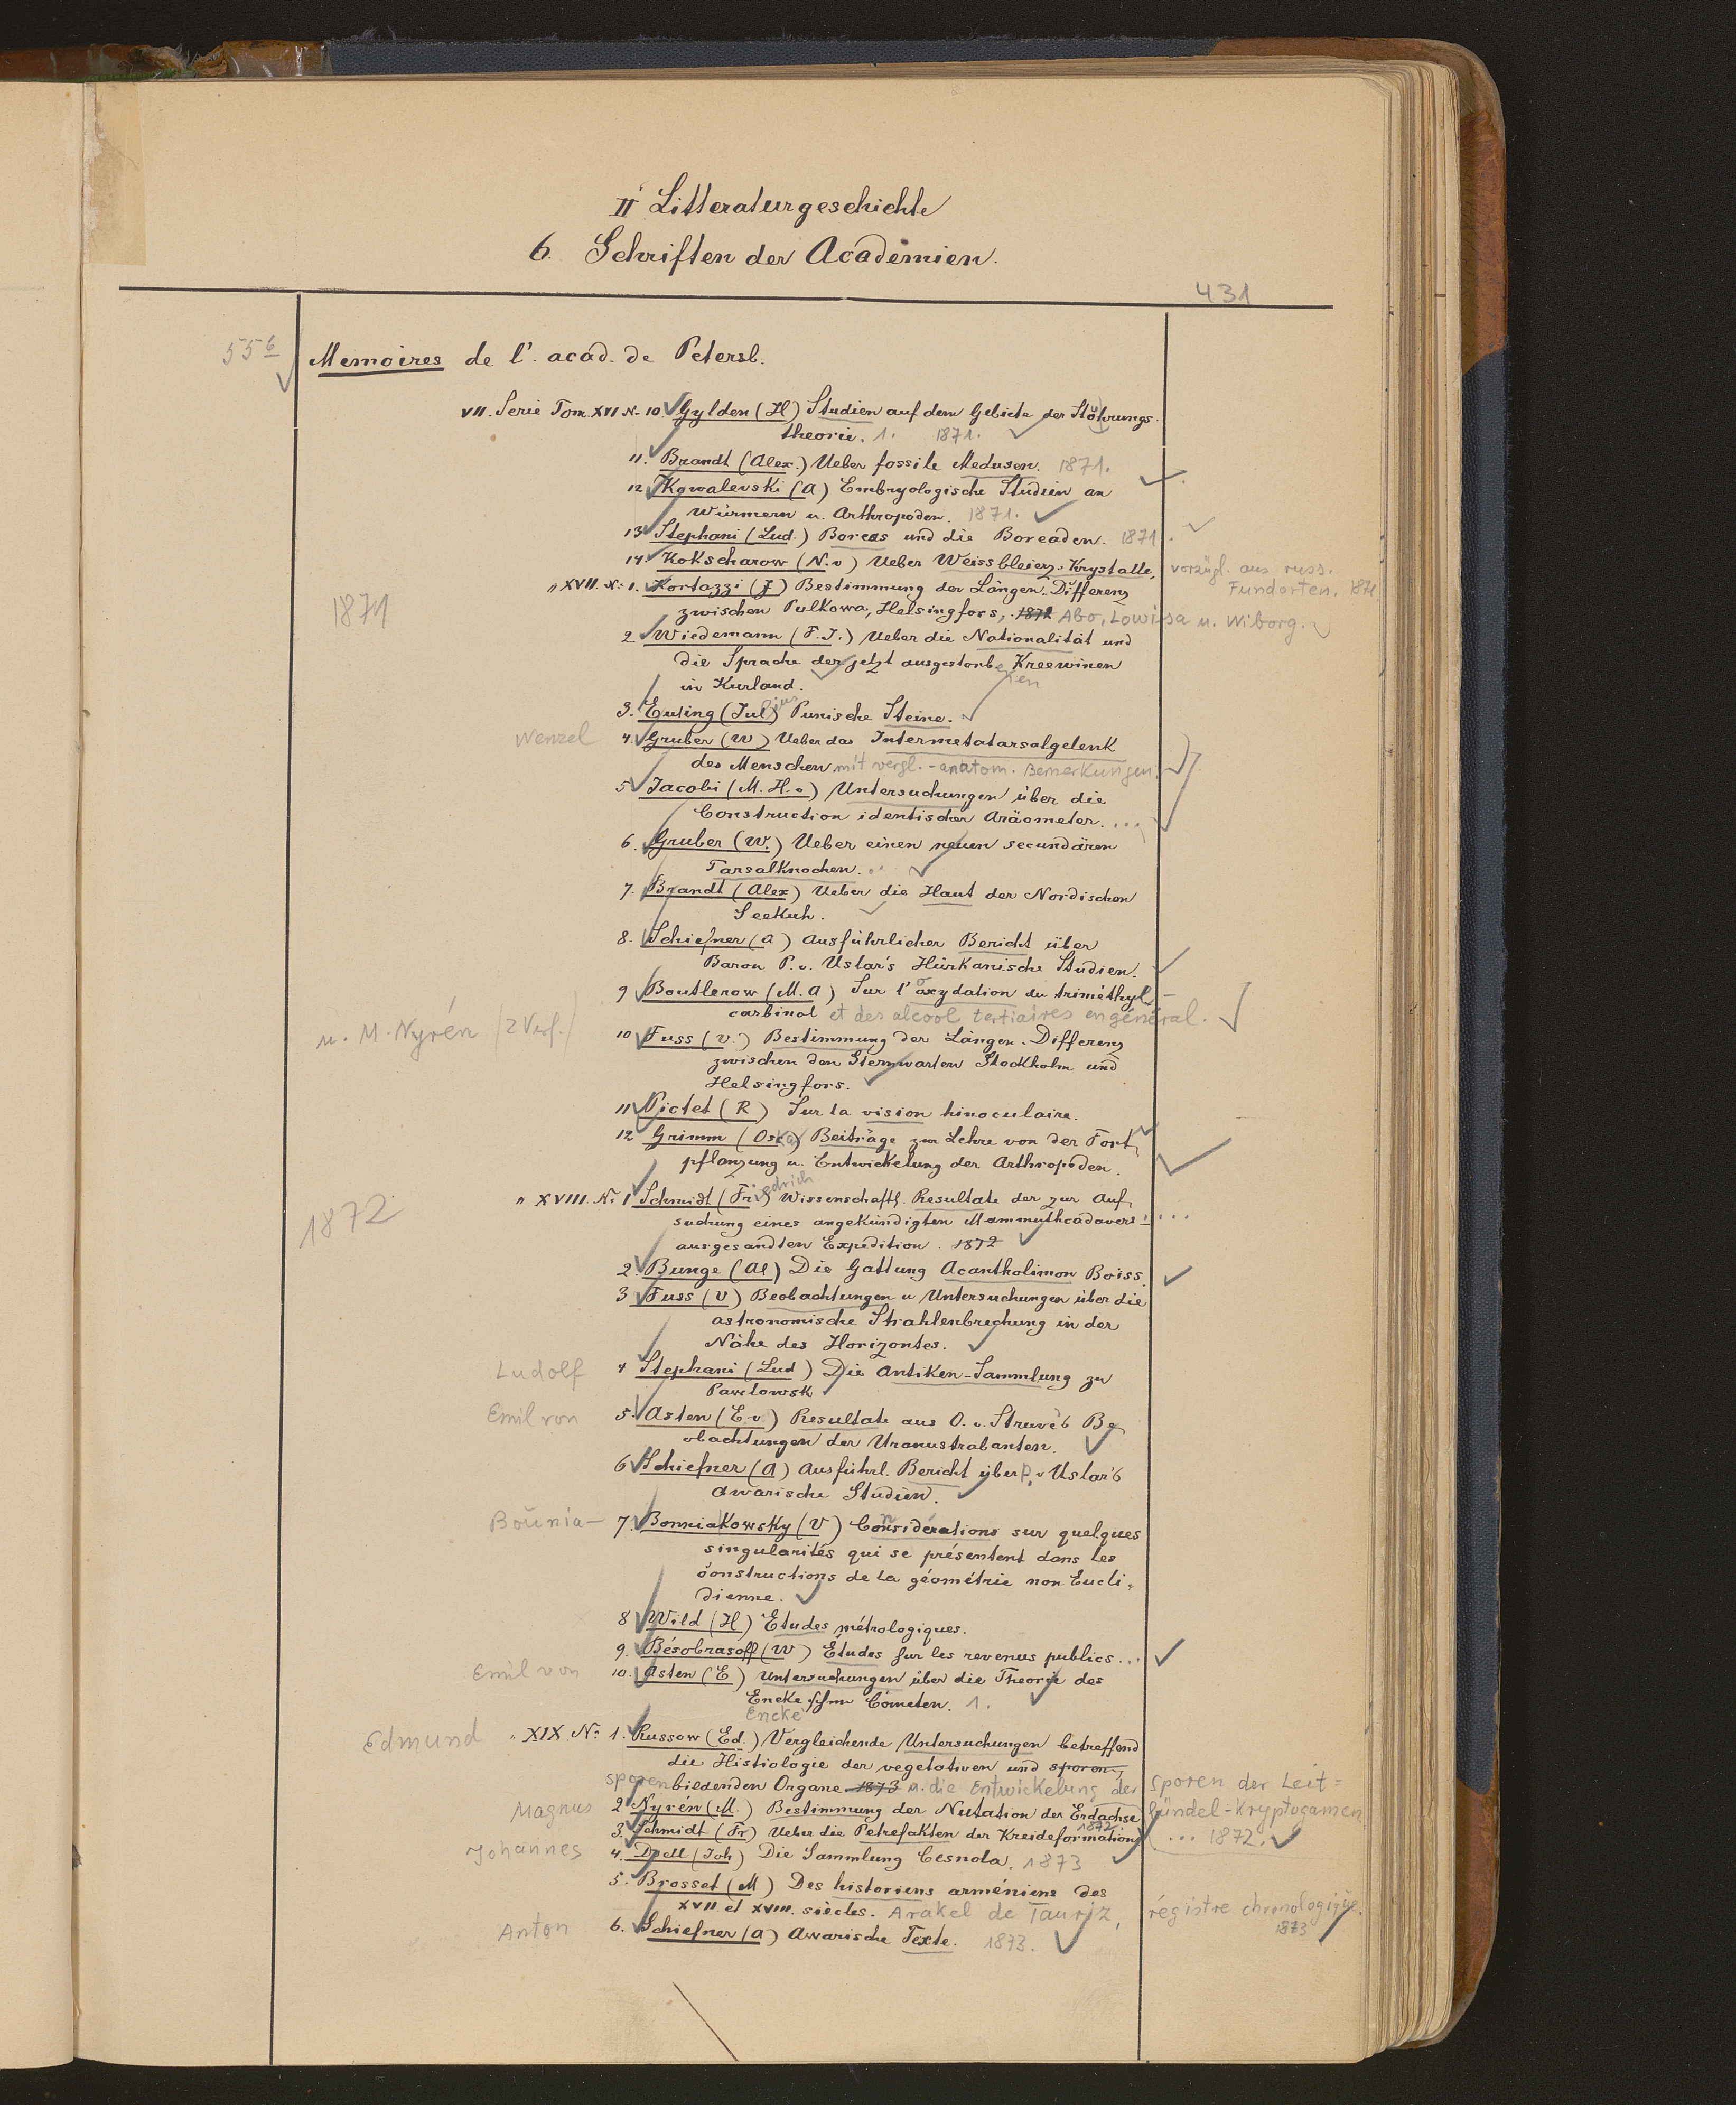 II Litteraturgeschichte
6. Schriften der Academien.
431
55 6 Memoires de l'. acad. de Petersb.
VII. Serie Tom. XVI N. 10. Gylden (H) Studien auf dem Gebiete der Störungs-
theorie. 1. 1871.
11. Brandt (Alex.) Ueber fossile Medusen. 1871.
12 Kowalevski (A) Embryologische Studien an
Würmern u. Arthropoden. 1871.
13 Stephani (Lud.) Boreas und die Boreaden. 1871.
14. Kokscharow (N. v) Ueber Weissbleierz-Krystalle, vorzügl. aus russ.
Fundorten. 1871
1871
" XVII. N: 1. Kortazzi (J) Bestimmung der Längen-Differenz
zwischen Pulkowa, Helsingfors, 1872 Abo, Lowisa u. Wiborg.
2. Wiedemann (F. J.) Ueber die Nationalität und
die Sprache der jetzt ausgestorbenen Kreewinen
in Kurland.
3. Euting (Julius) Punische Steine.
Wenzel 4. Gruber (W) Ueber das Intermetatarsalgelenk
des Menschen mit vergl.-anatom. Bemerkungen.
5 Jacobi (M. H. v) Untersuchungen über die
Construction identischer Aräometer. ...
6. Gruber (W.) Ueber einen neuen secundären
Tarsalknochen. ..
7. Brandt (Alex) Ueber die Haut der Nordischen
Seekuh.
8. Schiefner (A) Ausführlicher Bericht über
Baron P. v. Uslar's Hürkanische Studien.
9 Boutlerow (M. A) Sur l'oxydation du triméthyl-
carbinol et des alcool tertiaires en général.
u. M. Nyrén (2 Verf.) 10 Fuss (V.) Bestimmung der Längen-Differenz
zwischen den Sternwarten Stockholm und
Helsingfors.
11 Pictet (R) Sur la vision binoculaire.
12 Grimm (Oscar) Beiträge zur Lehre von der Fort-
pflanzung u. Entwickelung der Arthropoden.
1872
" XVIII. N: 1 Schmidt (Friedrich) Wissenschaftl. Resultate der zur Auf-
suchung eines angekündigten Mammuthcadavers ...
ausgesandten Expedition. 1872
2. Bunge (Al) Die Gattung Acantholimon Boiss.
3 Fuss (V) Beobachtungen u Untersuchungen über die
astronomische Strahlenbrechung in der
Nähe des Horizontes.
Ludolf 4 Stephani (Lud) Die Antiken-Sammlung zu
Pawlowsk
Emil von 5. Asten (E. v) Resultate aus O. v. Struve's Be-
obachtungen der Uranustrabanten.
6 Schiefner (A) Ausführl. Bericht über P. v Uslar's
Awarische Studien.
Bounia- 7. Bonniakowsky (V) Considérations sur quelques
singularités qui se présentent dans les
constructions de la géométrie non Eucli-
dienne.
8 Wild (H) Etudes métrologiques.
9. Bésobrasoff (W) Études sur les revenus publics...
Emil von 10. Asten (E) Untersuchungen über die Theorie des
Encke'schen Cometen. 1.
Encke
Edmund " XIX. No 1. Russow (Ed.) Vergleichende Untersuchungen betreffend
die Histiologie der vegetativen und sporen-
sporenbildenden Organe 1873 u. die Entwickelung der Sporen der Leit=
bündel-Kryptogamen,
... 1872.
Magnus 2 Nyrén (M.) Bestimmung der Nutation der Erdachse
1872.
3. Schmidt (Fr) Ueber die Petrefakten der Kreideformation
Johannes 4. Doell (Joh) Die Sammlung Cesnola. 1873
5. Brosset (M) Des historiens arméniens des
XVII et XVIII. siècles. Arakel de Tauriz, régistre chronologique.
1873
Anton 6. Schiefner (A) Awarische Texte. 1873.